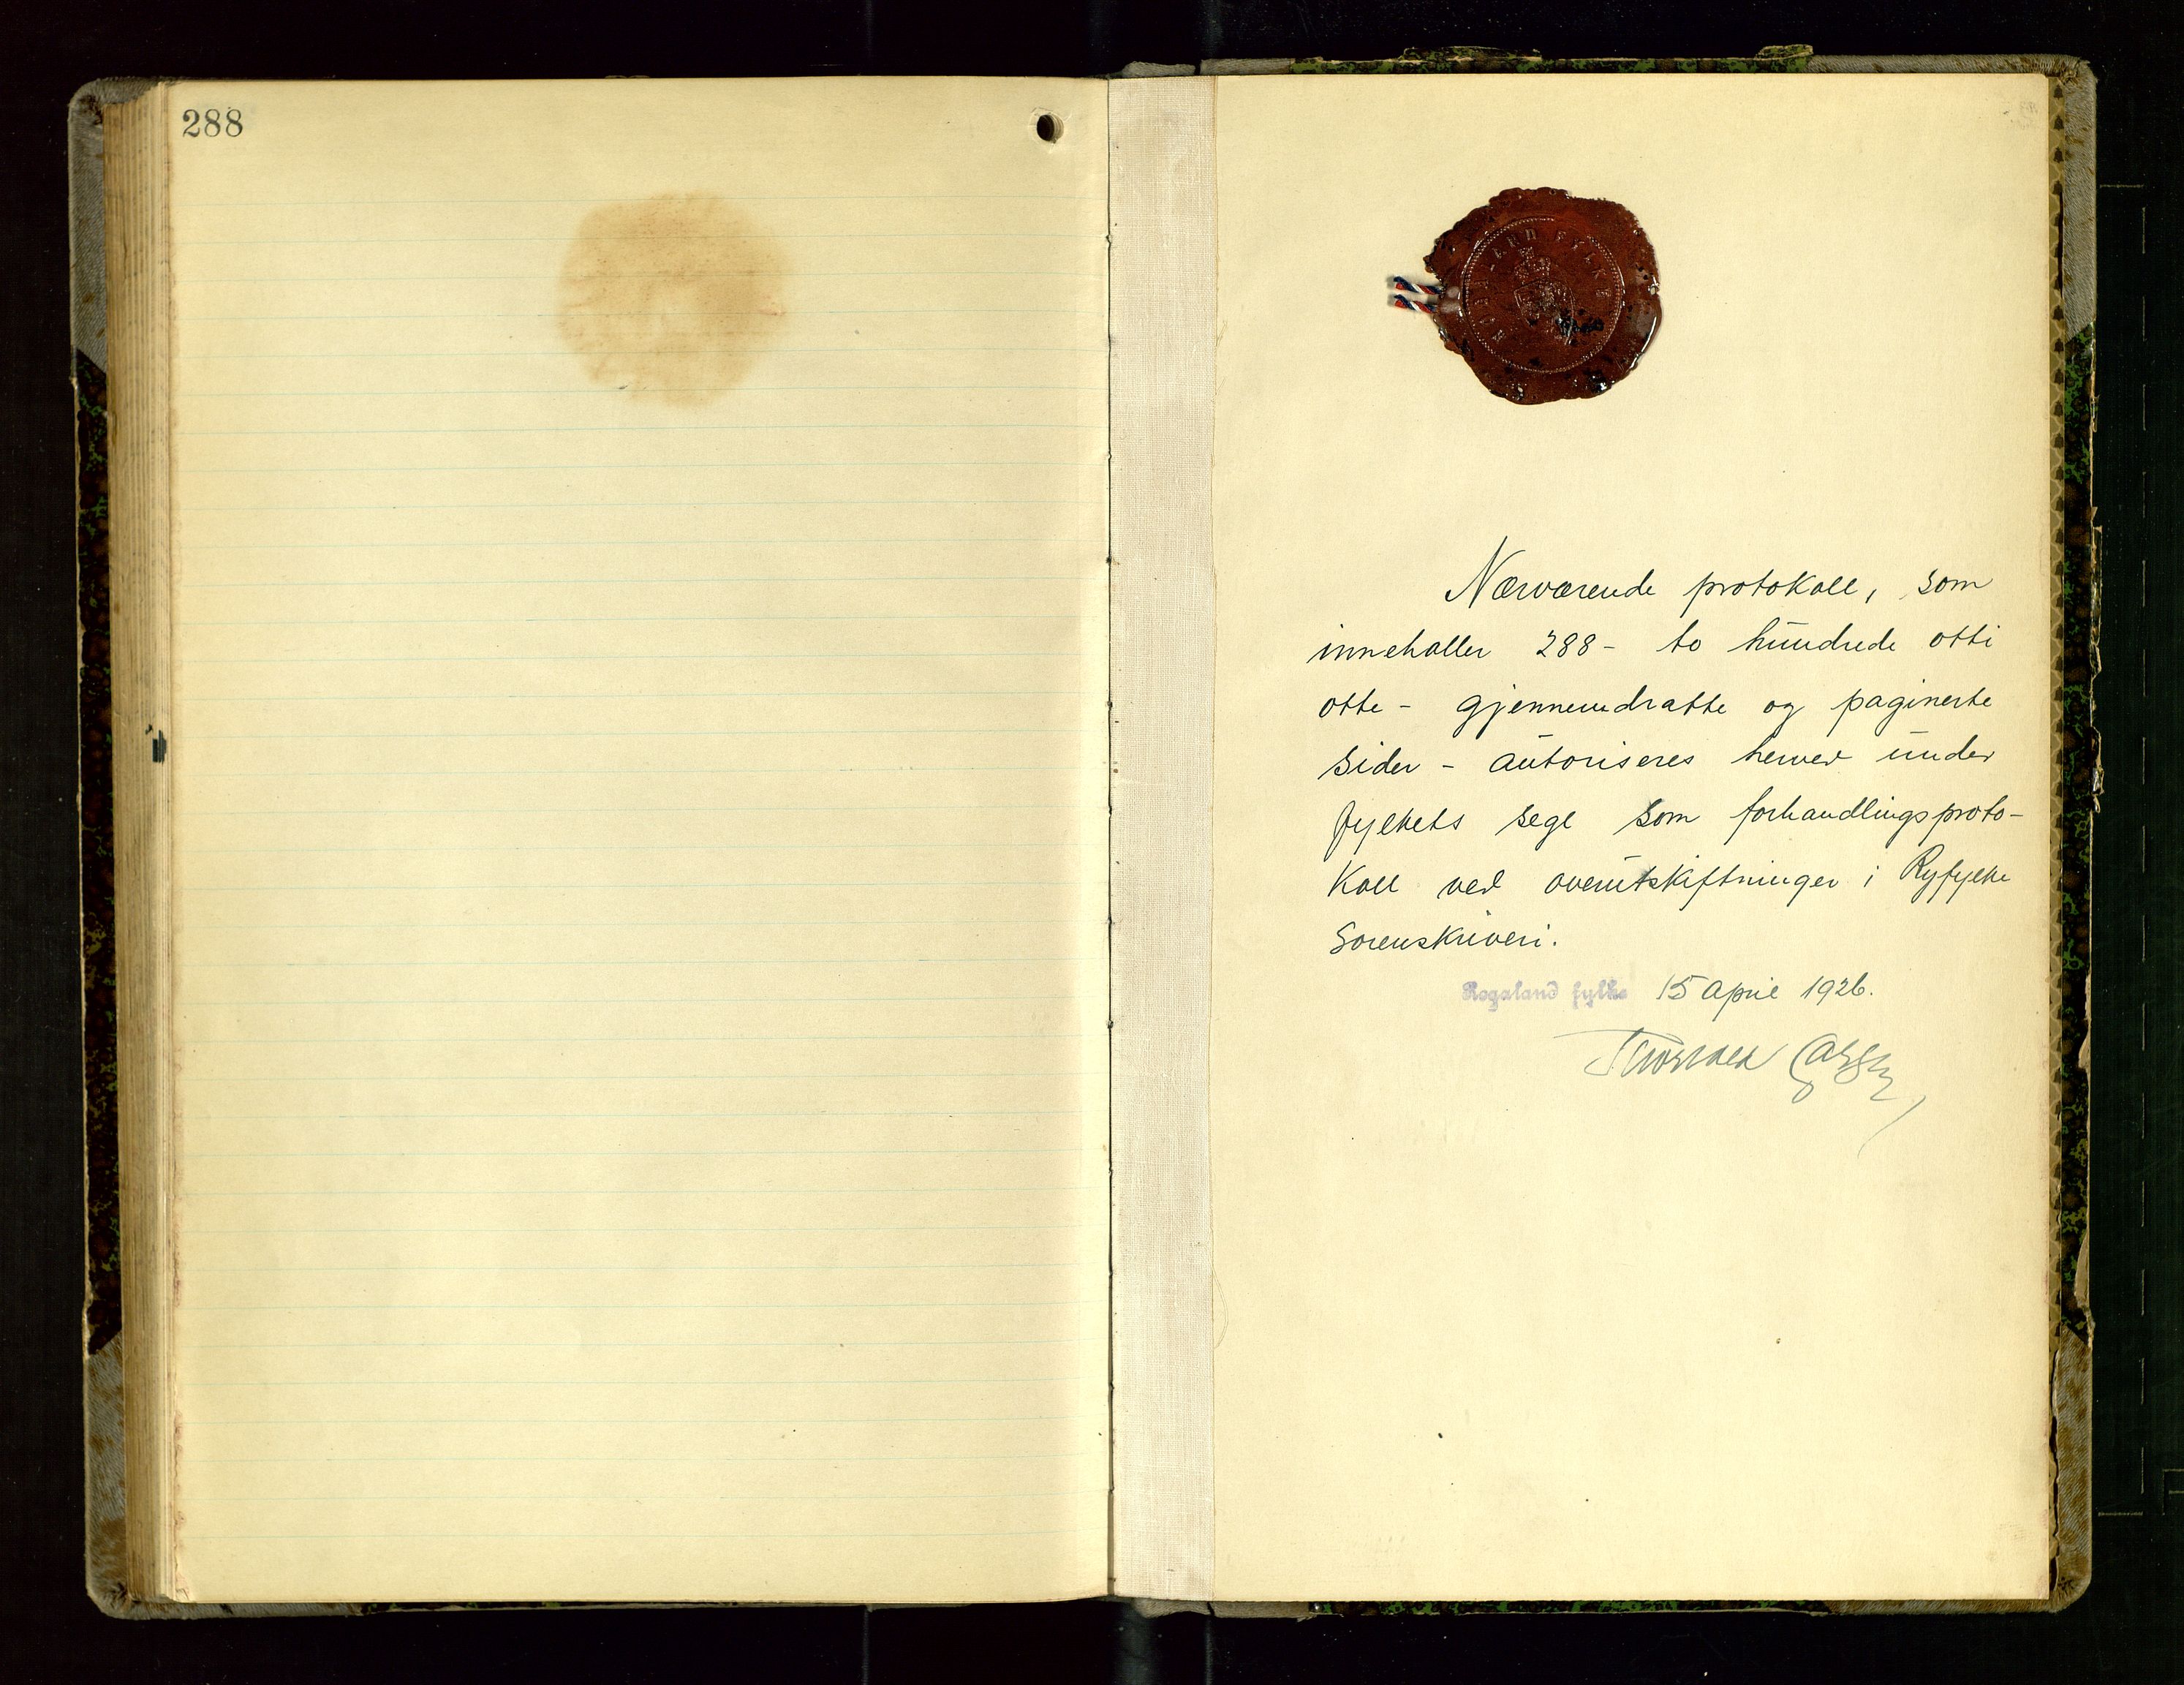 288
ROGALAND FYLKE
Nærværende protokoll, som
inneholler 288- to hundrede otti
otte - gjennemdratte og paginerte
sider - autoriseres herved under
fylkets segl som forhandlingsproto-
koll ved overutskiftninger i Ryfylke
Sorenskriveri.
Rogaland fylke 15 April 1926.